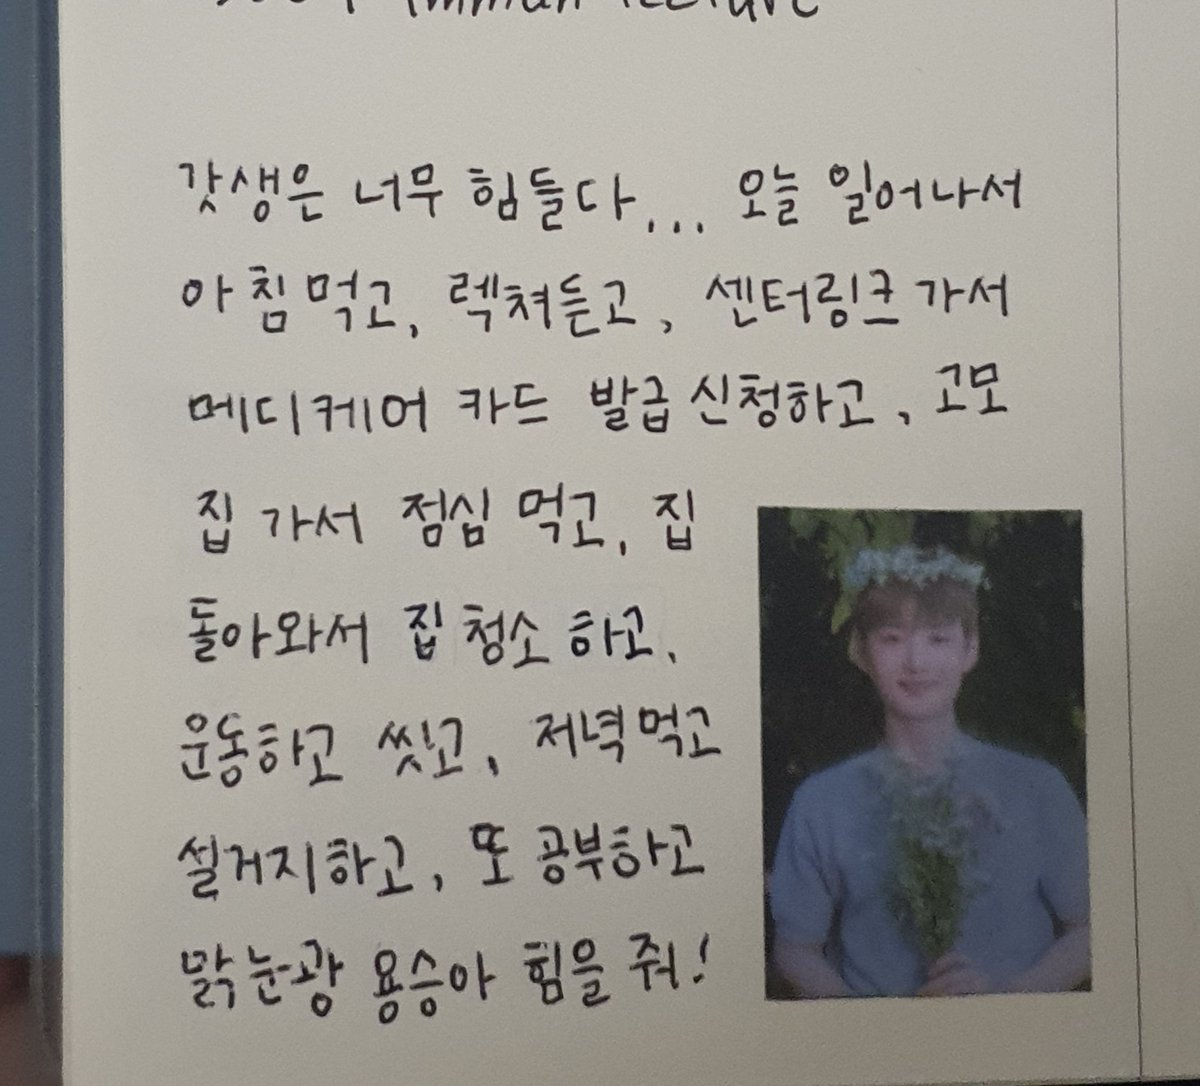 갓생은 너무 힘들다... 오늘 일어나서
아침먹고, 렉쳐듣고, 센터링크 가서
메디케어 카드 발급신청하고, 고모
집 가서 점심 먹고, 집
돌아와서 집 청소 하고,
운동하고 씻고, 저녁먹고
설거지하고, 또 공부하고
맑눈광 용승아 힘을 줘!